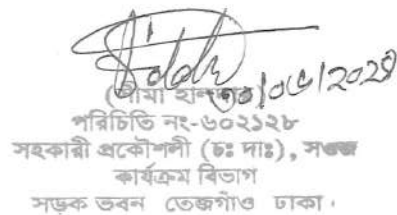 ৩০/০৬/২০২৪
(সীমা হালদার)
পরিচিতি নং-৬০২১২৮
সহকারী প্রকৌশলী (চঃ দাঃ), সওজ
কার্যক্রম বিভাগ
সড়ক ভবন তেজগাঁও ঢাকা।